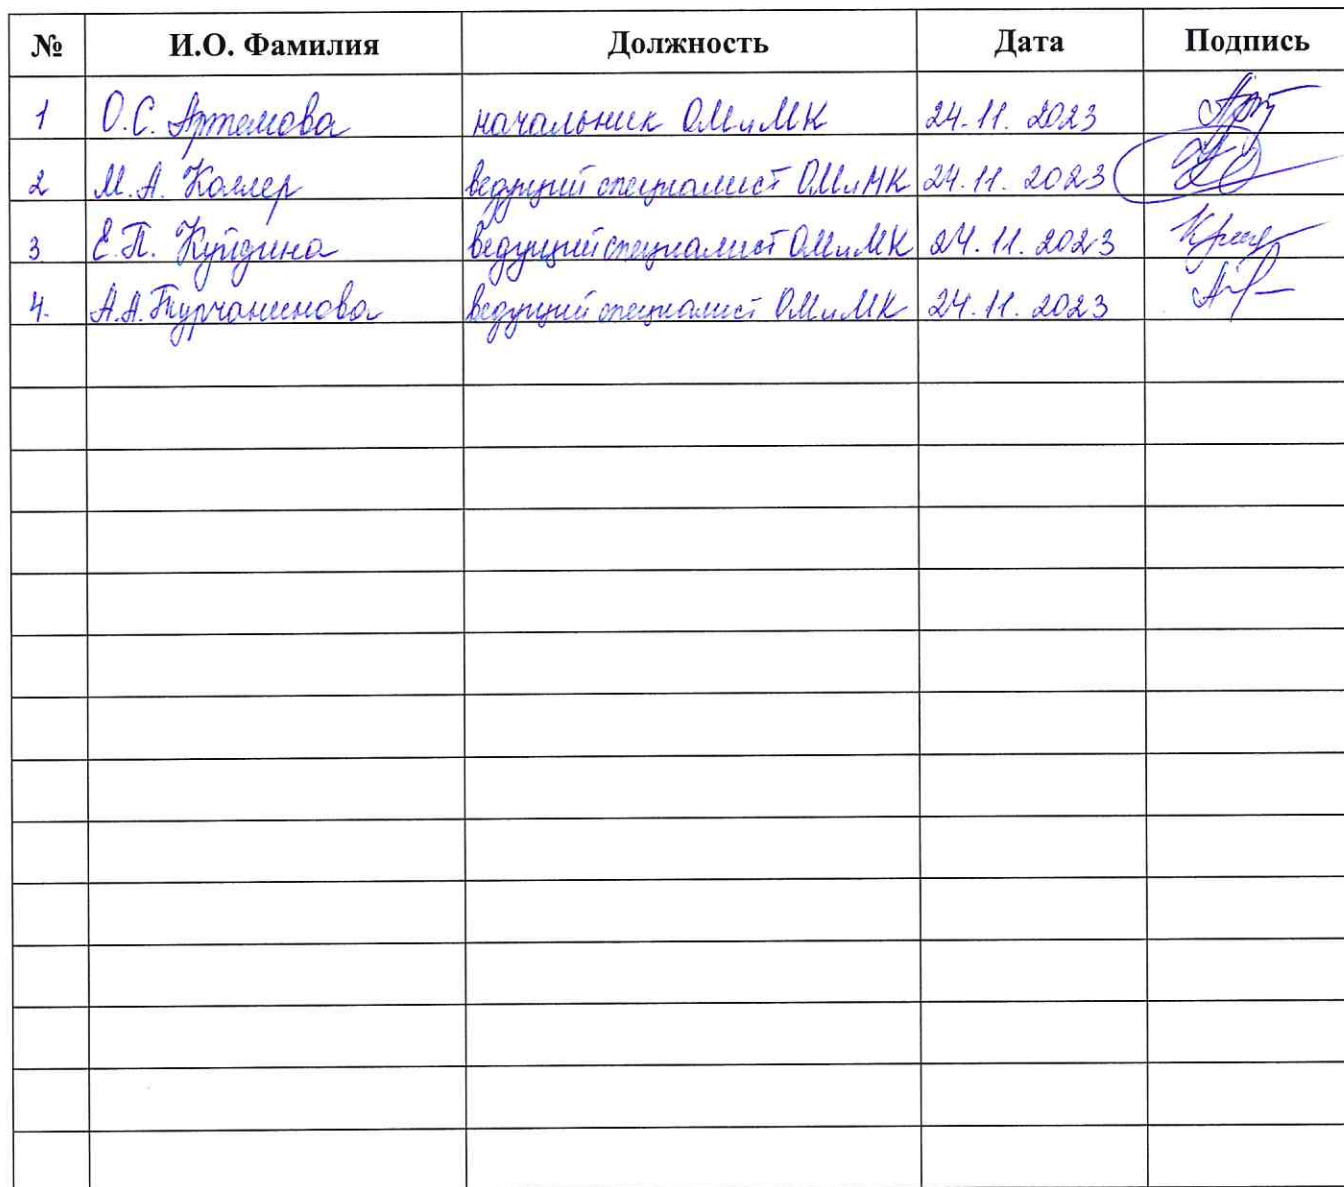 № И.О. Фамилия Должность Дата Подпись
1 О.С. Артемова начальник ОМиМК 24.11.2023
2 М.А. Коллер ведущий специалист ОМиМК 24.11.2023
3. Е.П. Куйдина ведущий специалист ОМиМК 24.11.2023
4. А.А. Турчанинова ведущий специалист ОМиМК 24.11.2023